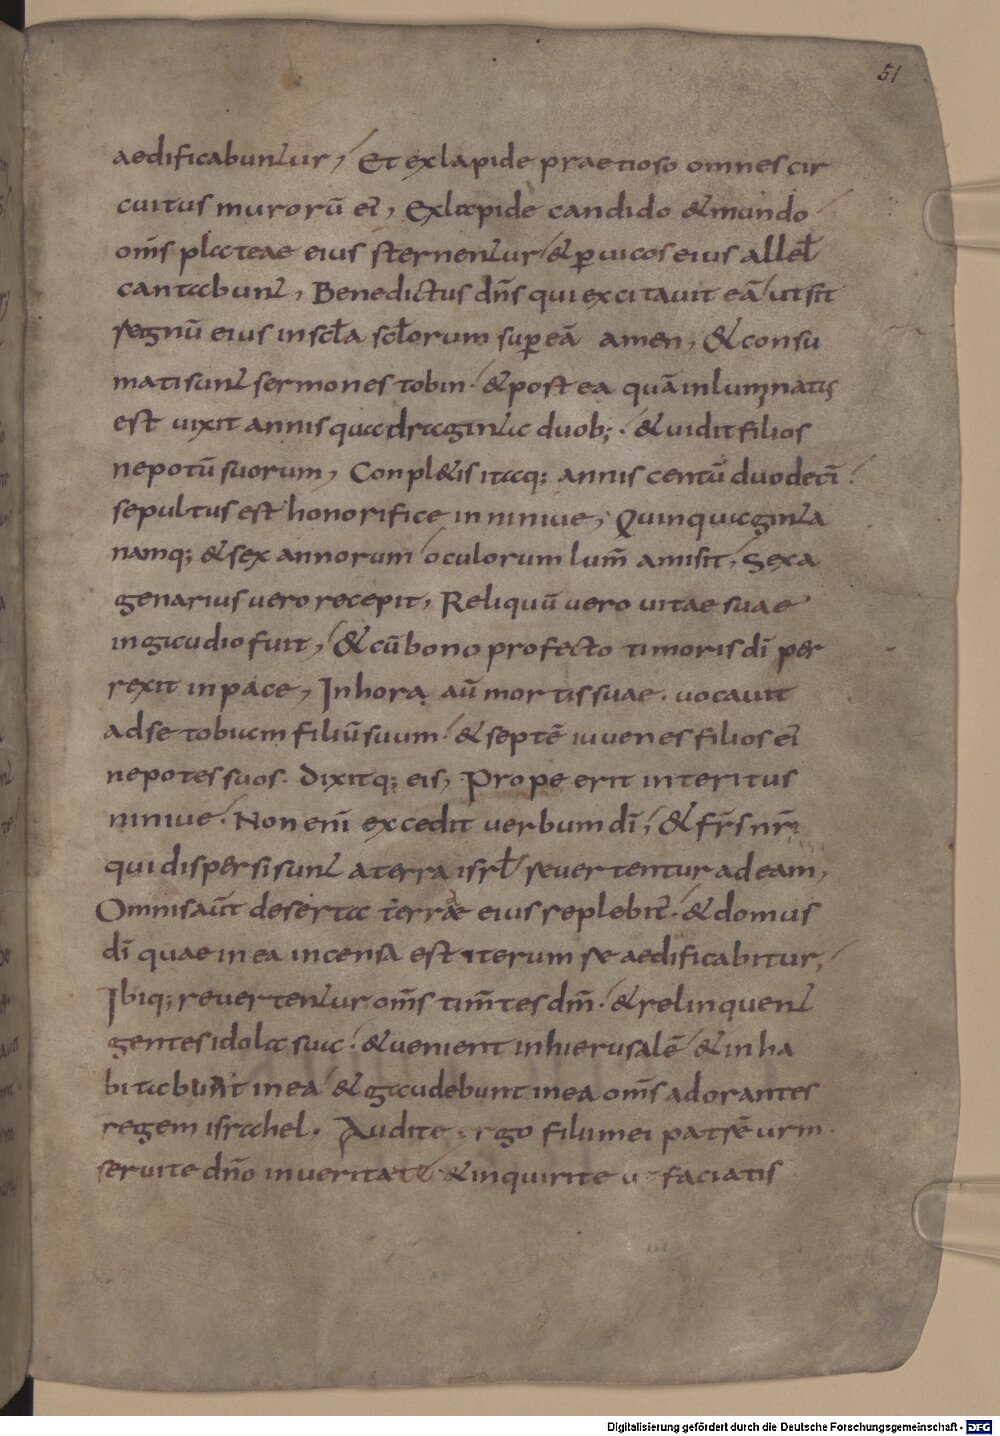 51
aedificabuntur, Et ex lapide praetioso omnes cir
cuitus murorū ei', Ex lapide candido & mundo
om̄s plateae eius sternentur & p uicos eius allel
cantabunt, Benedictus dn̄s qui excitauit eā ut sit
regnū eius in scła scłorum sup eā amen, & consu
mati sunt sermones tobin. & post ea quā inluminatis
est uixit annis quadraginta duob; . & uidit filios
nepotū suorum, Conpl&is itaq; annis centū duodeci
sepultus est honorifice in niniue, Quinquaginta
namq; & sex annorum oculorum lum̄ amisit, Sexa
genarius uero recepit, Reliquū uero uitae suae
in gaudio fuit, & cū bono profecto timoris dī per
rexit in pace, In hora aū mortis suae . uocauit
ad se tobiam filiū suum . & septē iuuenes filios ei'
nepotes suos . dixitq; eis, Prope erit interitus
niniue . Non eni excedit uerbum dī, & fr̄s nr̄i
qui dispersi sunt a terra isrl reuertentur ad eam,
Omnis aūt deserta terrae eius replebit' . & domus
dī quae in ea incensa est iterum re aedificabitur,
Ibiq; reuertentur om̄s tim̄tes dm̄ . & relinquent
gentes idola sua . & uenient in hierusalē & inha
bitabunt in ea & gaudebunt in ea om̄s adorantes
regem israhel . Audite ergo filii mei patrē urm
seruite dn̄o in ueritate & inquirite u faciatis
Digitalisierung gefördert durch die Deutsche Forschungsgemeinschaft - DFG